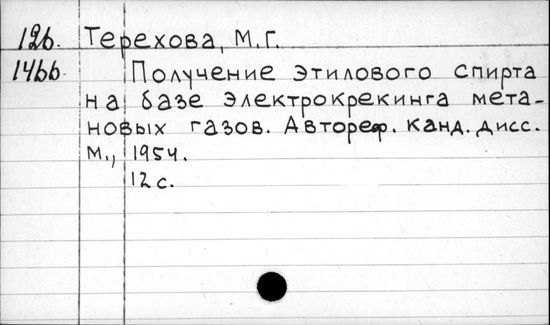 12б. Терехова, М.Г.
1466 Получение этилового спирта
на базе электрокрекинга мета-
новых газов. Автореф. канд. дисс.
М., 1954.
12 с.